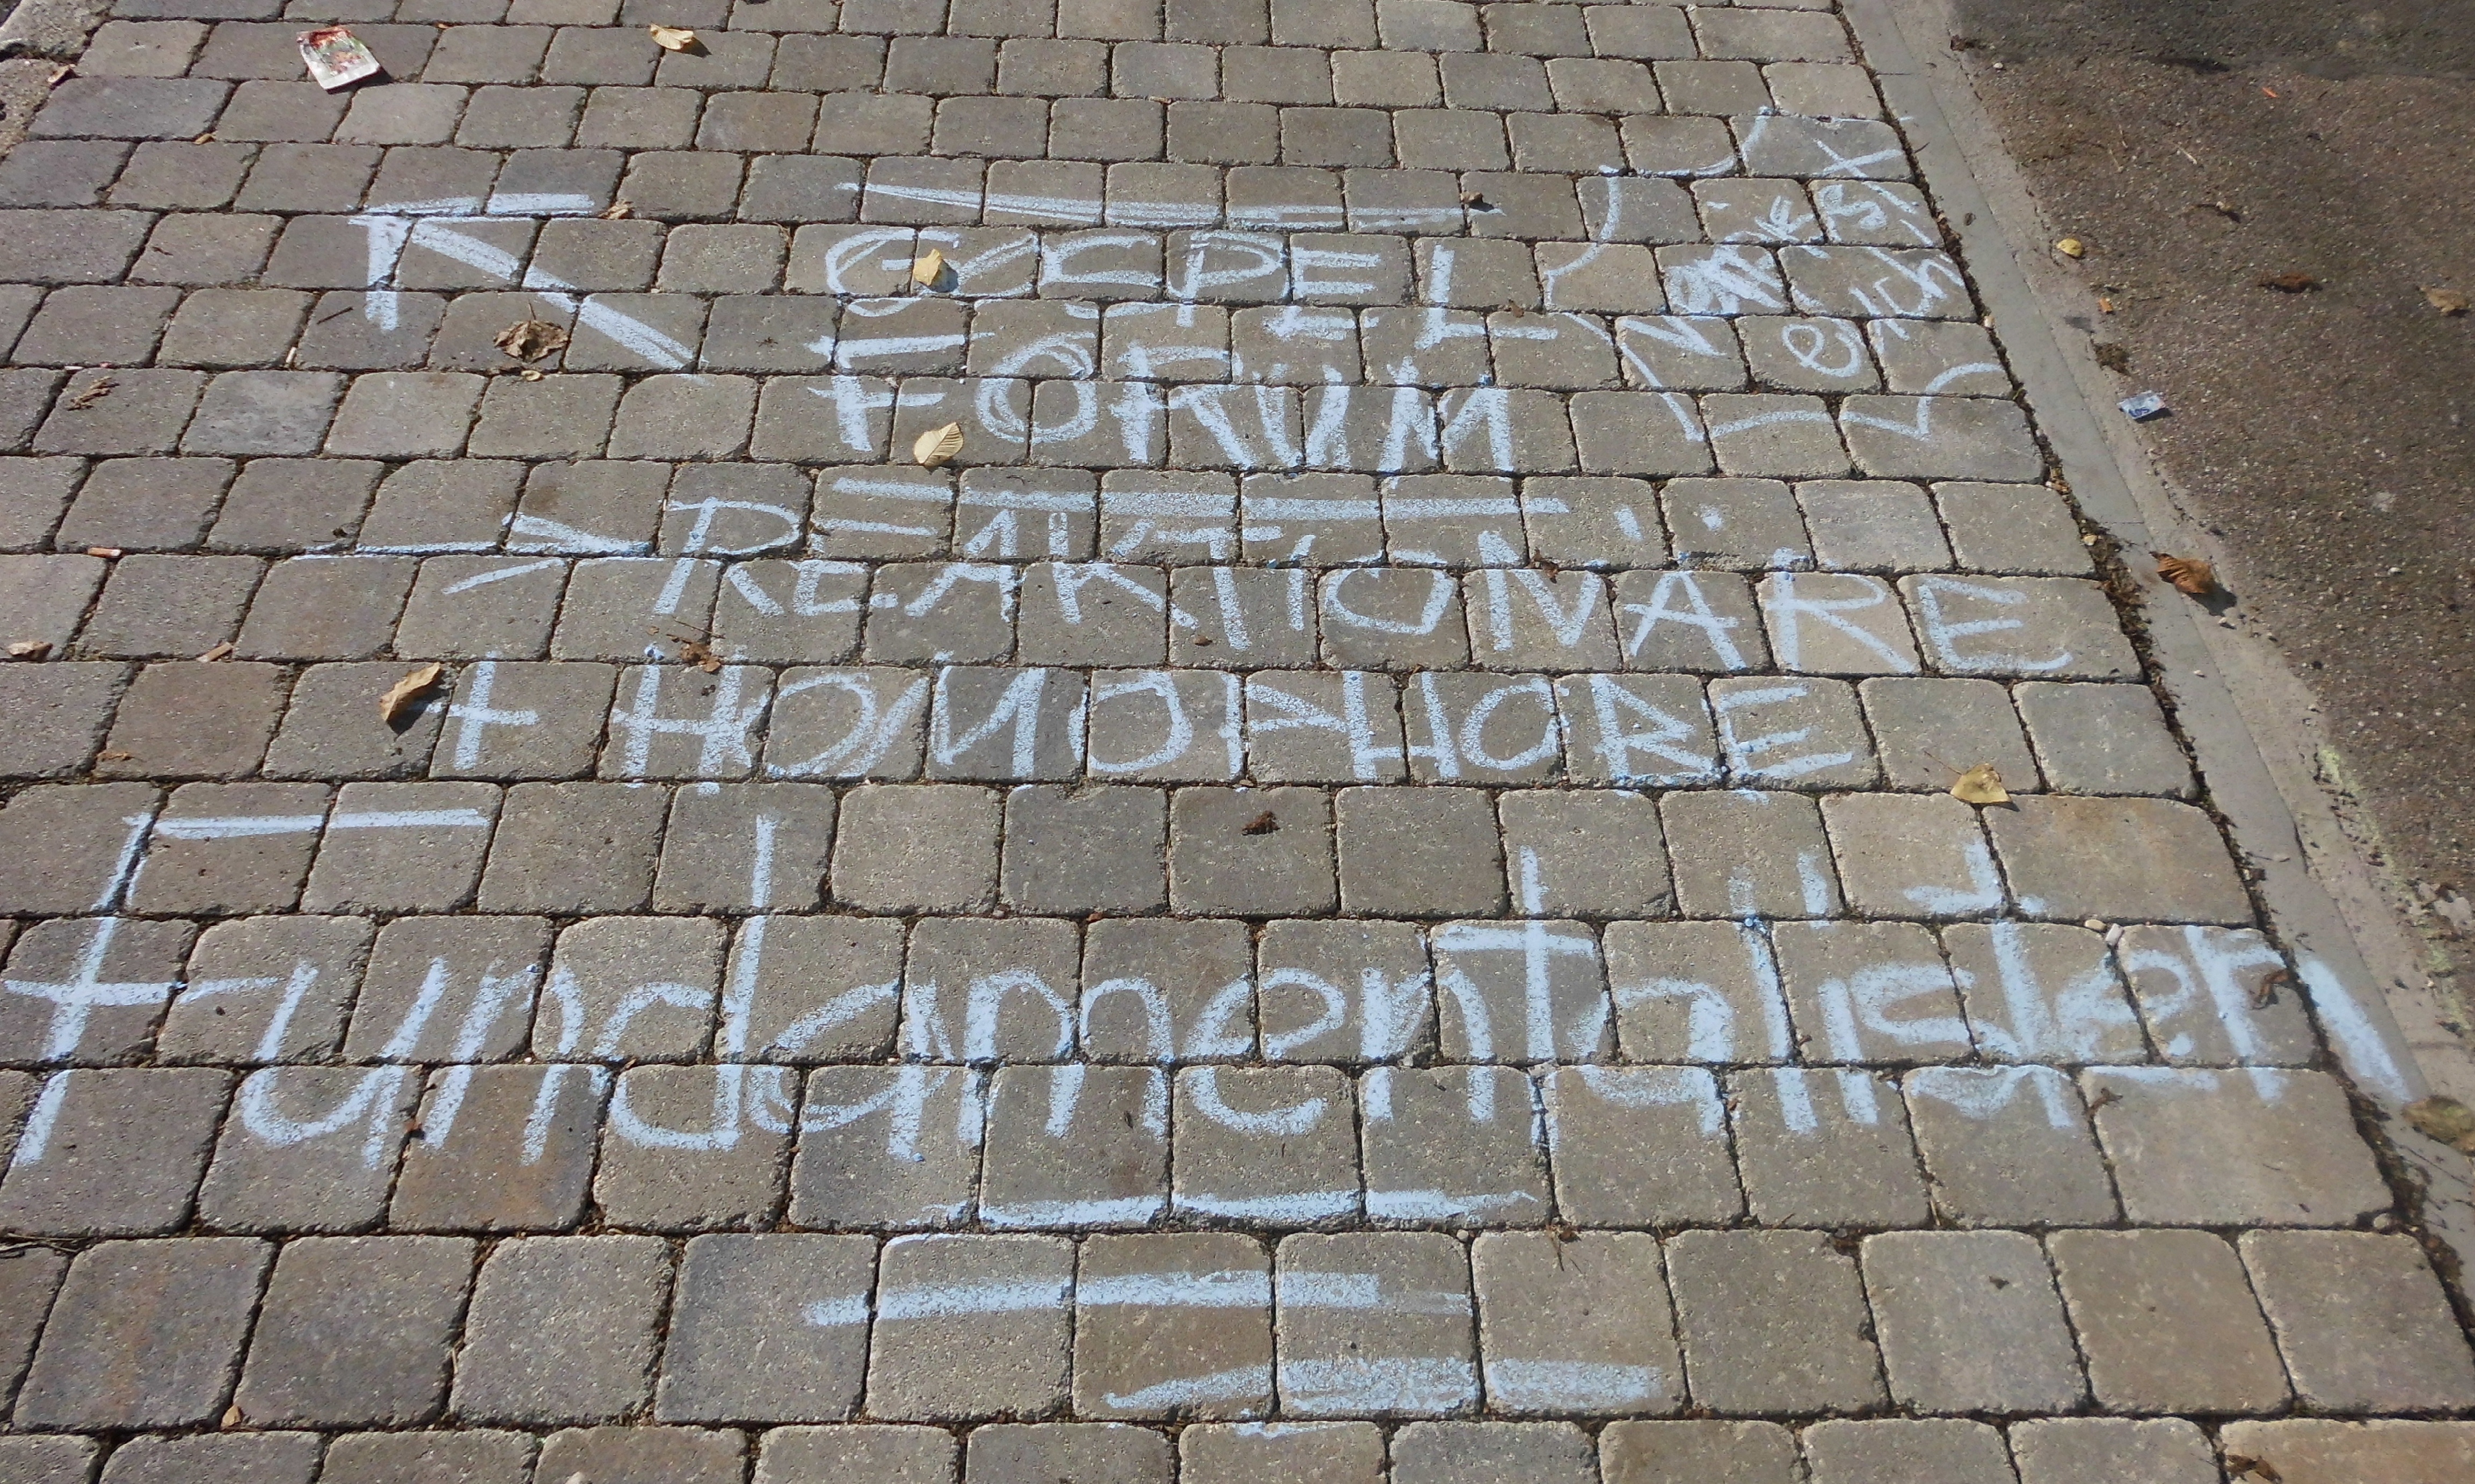 GOSPEL
FORUM
→ REAKTIONÄRE
+ HOMOPHOBE
Fundamentalisten
euch